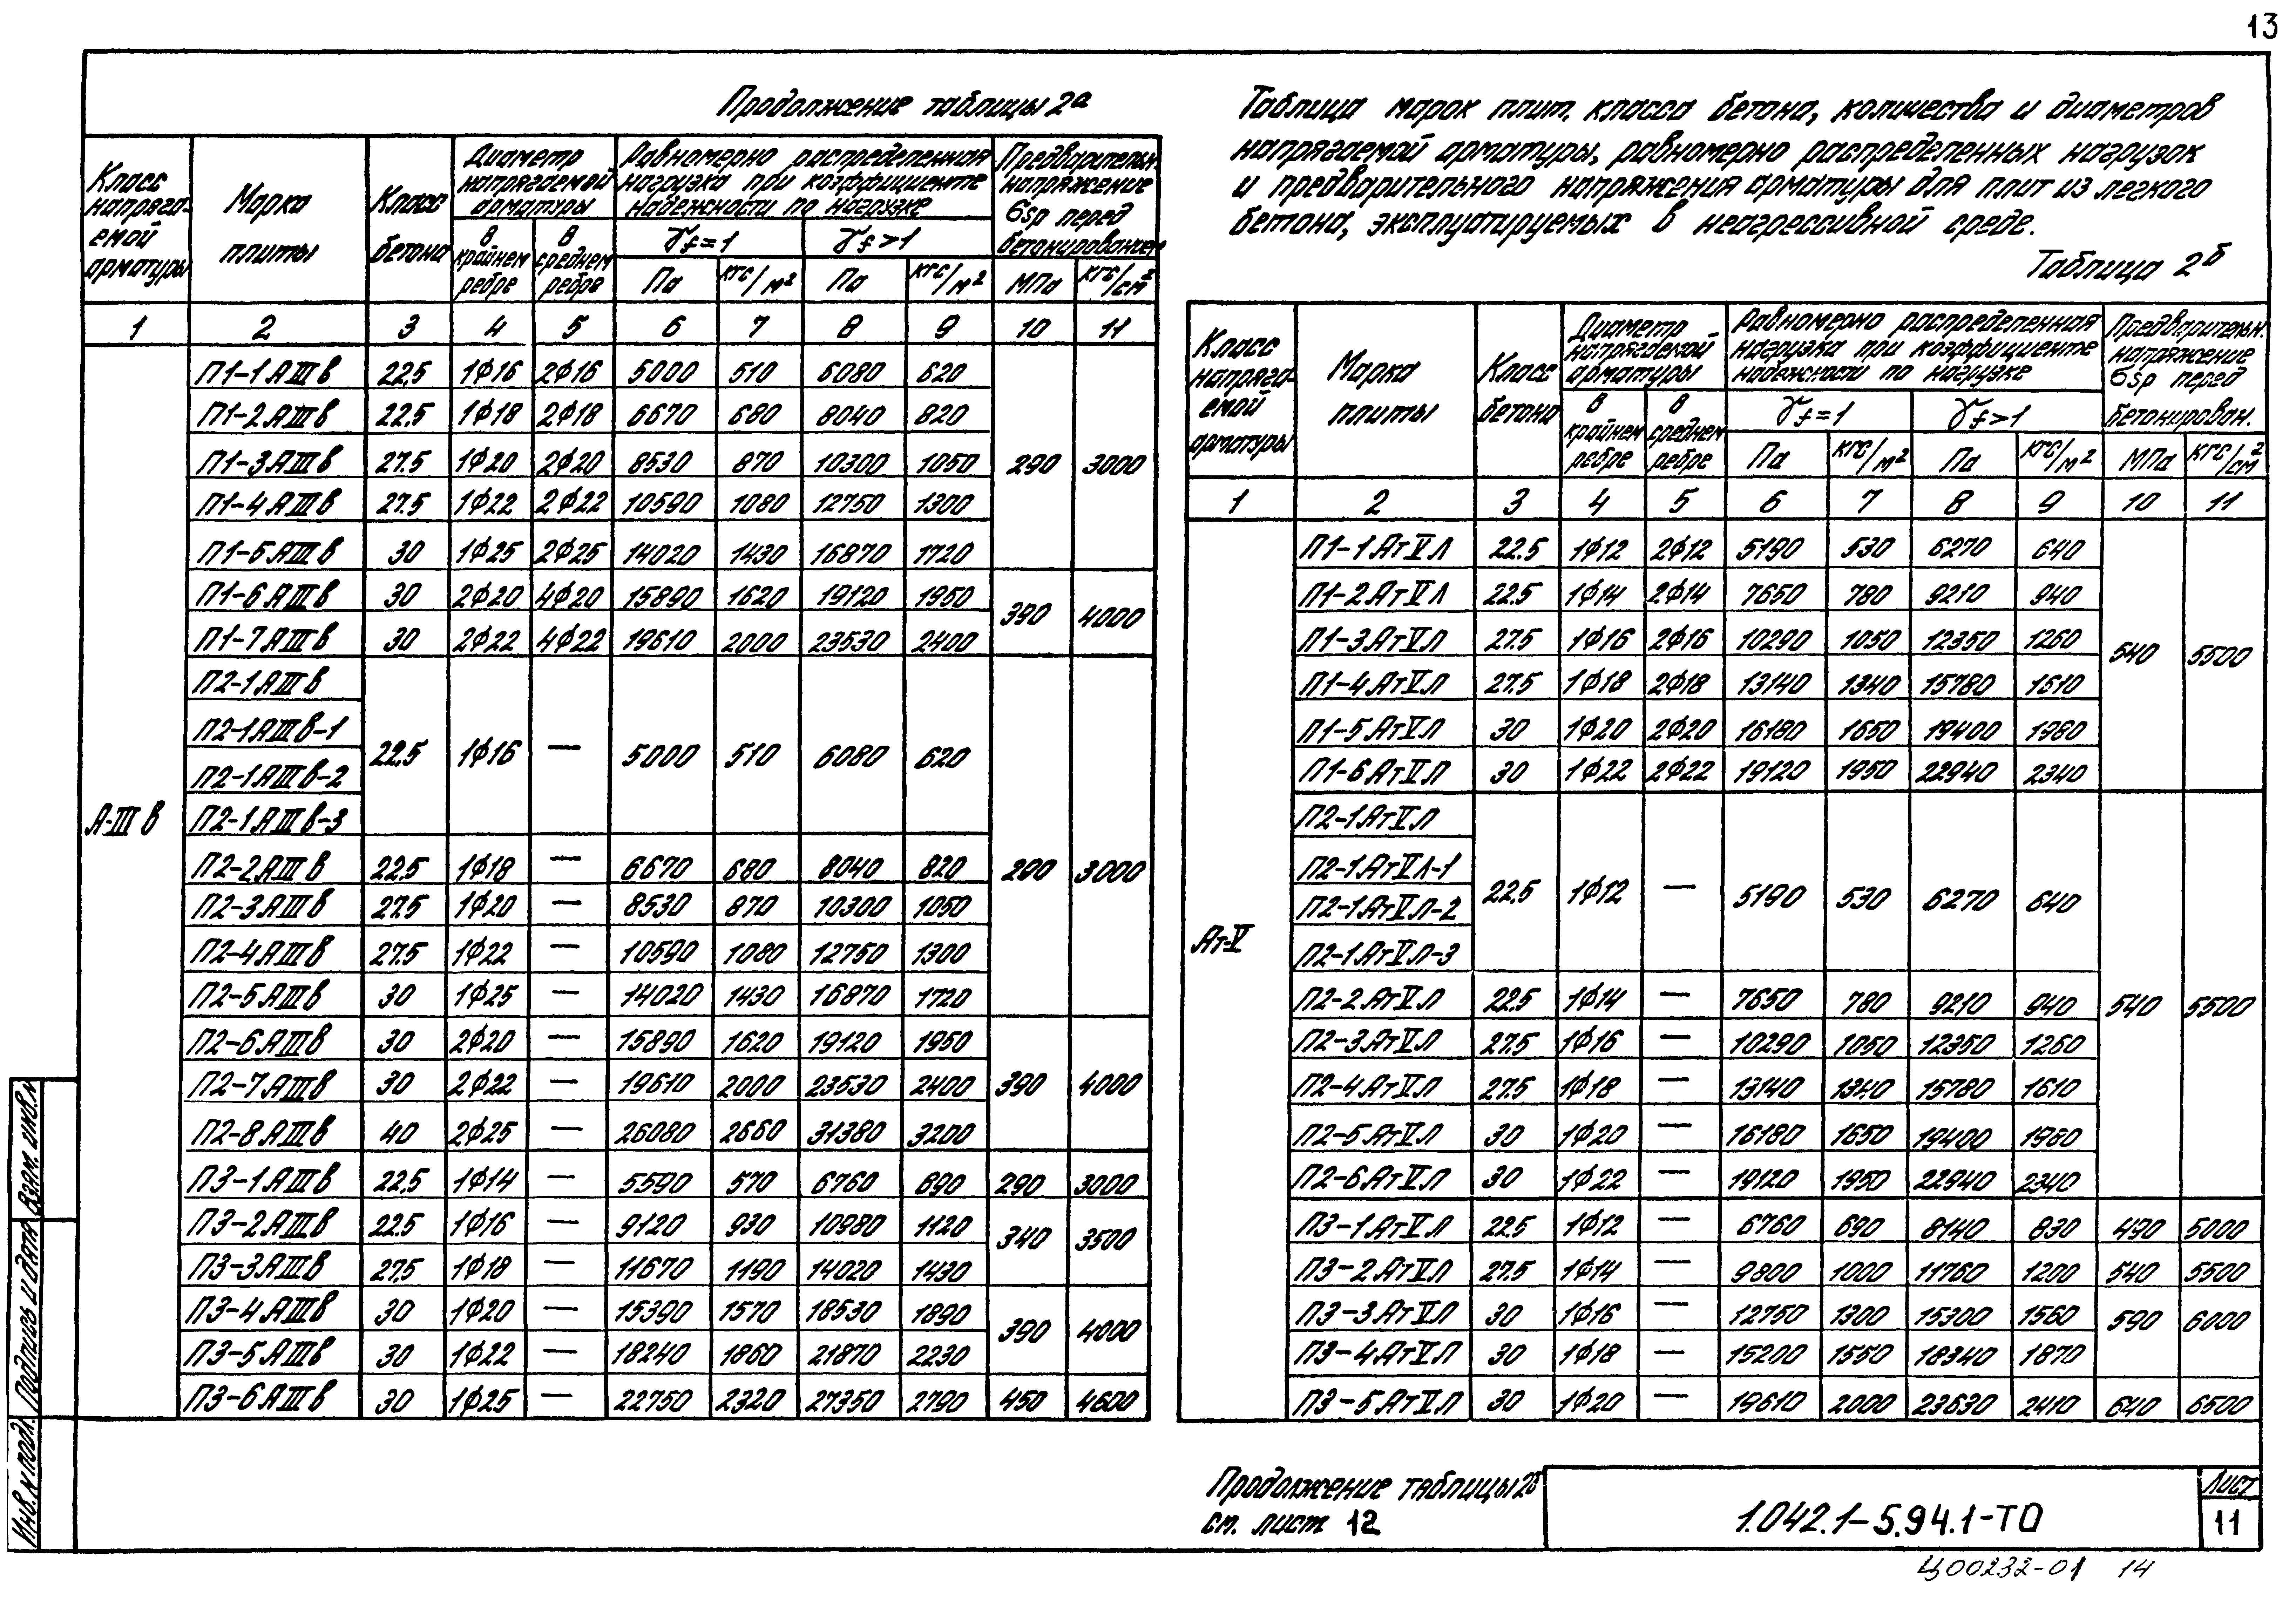 13
Продолжение таблицы 2а
Класс напряга-емой арматуры | Марка плиты | Класс бетона | Диаметр напрягаемой арматуры | Равномерно распределенная нагрузка при коэффициенте надежности по нагрузке | Предварительн. напряжение σsp перед бетонированием
в крайнем ребре | в среднем ребре | γf=1 | γf>1
Па | кгс/м² | Па | кгс/м² | МПа | кгс/см²
1 2 3 4 5 6 7 8 9 10 11
А-III в
П1-1АIIIв 22.5 1ф16 2ф16 5000 510 6080 620
П1-2АIIIв 22.5 1ф18 2ф18 6670 680 8040 820
П1-3АIIIв 27.5 1ф20 2ф20 8530 870 10300 1050 290 3000
П1-4АIIIв 27.5 1ф22 2ф22 10590 1080 12750 1300
П1-5АIIIв 30 1ф25 2ф25 14020 1430 16870 1720
П1-6АIIIв 30 2ф20 4ф20 15890 1620 19120 1950 390 4000
П1-7АIIIв 30 2ф22 4ф22 19610 2000 23530 2400
П2-1АIIIв
П2-1АIIIв-1
22.5 1ф16 — 5000 510 6080 620
П2-1АIIIв-2
П2-1АIIIв-3
П2-2АIIIв 22.5 1ф18 — 6670 680 8040 820 290 3000
П2-3АIIIв 27.5 1ф20 — 8530 870 10300 1050
П2-4АIIIв 27.5 1ф22 — 10590 1080 12750 1300
П2-5АIIIв 30 1ф25 — 14020 1430 16870 1720
П2-6АIIIв 30 2ф20 — 15890 1620 19120 1950
П2-7АIIIв 30 2ф22 — 19610 2000 23530 2400 390 4000
П2-8АIIIв 40 2ф25 — 26080 2660 31380 3200
П3-1АIIIв 22.5 1ф14 — 5590 570 6760 690 290 3000
П3-2АIIIв 22.5 1ф16 — 9120 930 10980 1120 340 3500
П3-3АIIIв 27.5 1ф18 — 11670 1190 14020 1430
П3-4АIIIв 30 1ф20 — 15390 1570 18530 1890 390 4000
П3-5АIIIв 30 1ф22 — 18240 1860 21870 2230
П3-6АIIIв 30 1ф25 — 22750 2320 27350 2790 450 4600
Таблица марок плит, класса бетона, количества и диаметров
напрягаемой арматуры, равномерно распределенных нагрузок
и предварительного напряжения арматуры для плит из легкого
бетона, эксплуатируемых в неагрессивной среде.
Таблица 2б
Класс напряга-емой арматуры | Марка плиты | Класс бетона | Диаметр напрягаемой арматуры | Равномерно распределенная нагрузка при коэффициенте надежности по нагрузке | Предварительн. напряжение σsp перед бетонирован.
в крайнем ребре | в среднем ребре | γf=1 | γf>1
Па | кгс/м² | Па | кгс/м² | МПа | кгс/см²
1 2 3 4 5 6 7 8 9 10 11
Ат-V
П1-1АтVл 22.5 1ф12 2ф12 5190 530 6270 640
П1-2АтVл 22.5 1ф14 2ф14 7650 780 9210 940
П1-3АтVл 27.5 1ф16 2ф16 10290 1050 12350 1260 540 5500
П1-4АтVл 27.5 1ф18 2ф18 13140 1340 15780 1610
П1-5АтVл 30 1ф20 2ф20 16180 1650 19400 1980
П1-6АтVл 30 1ф22 2ф22 19120 1950 22940 2340
П2-1АтVл
П2-1АтVл-1
22.5 1ф12 — 5190 530 6270 640
П2-1АтVл-2
П2-1АтVл-3
П2-2АтVл 22.5 1ф14 — 7650 780 9210 940 540 5500
П2-3АтVл 27.5 1ф16 — 10290 1050 12350 1260
П2-4АтVл 27.5 1ф18 — 13140 1340 15780 1610
П2-5АтVл 30 1ф20 — 16180 1650 19400 1980
П2-6АтVл 30 1ф22 — 19120 1950 22940 2340
П3-1АтVл 22.5 1ф12 — 6760 690 8140 830 490 5000
П3-2АтVл 27.5 1ф14 — 9800 1000 11760 1200 540 5500
П3-3АтVл 30 1ф16 — 12750 1300 15300 1560 590 6000
П3-4АтVл 30 1ф18 — 15200 1550 18340 1870
П3-5АтVл 30 1ф20 — 19610 2000 23630 2410 640 6500
Продолжение таблицы 2б
см. лист 12
1.042.1-5.94.1-ТО
Лист
11
Ц00232-01 14
Взам. инв.N
Подпись и дата
Инв.N подл.